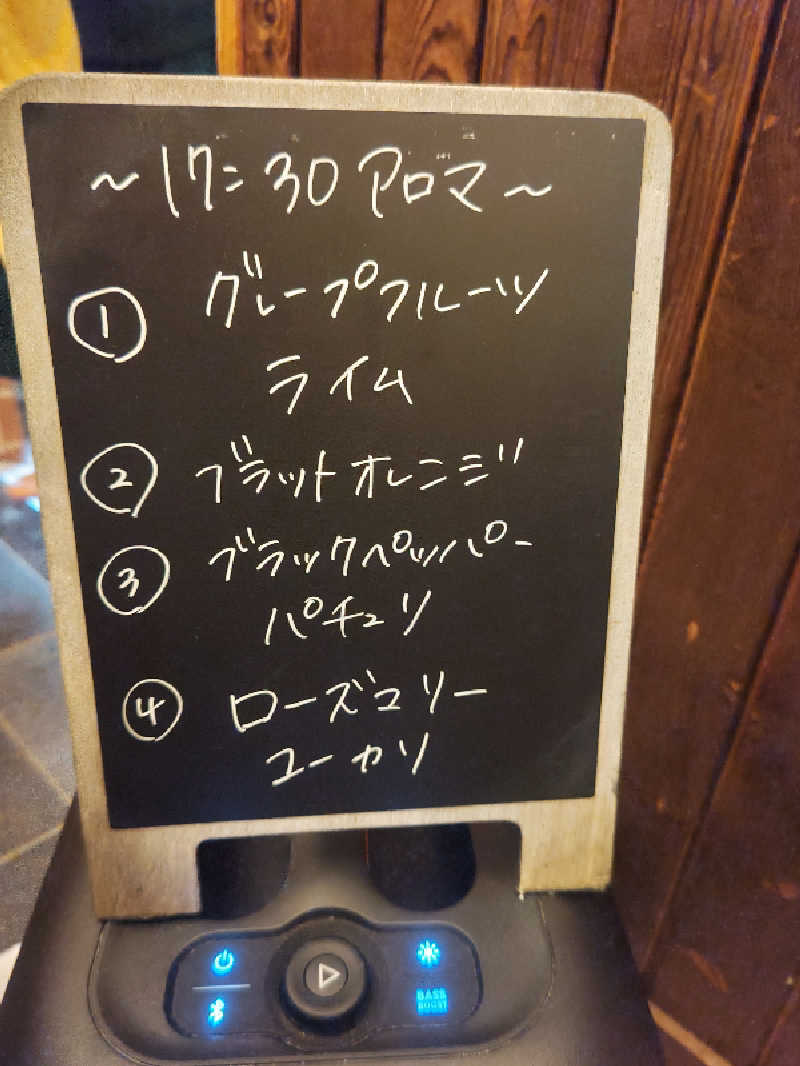 ～17:30 アロマ～
① グレープフルーツ
ライム
② ブラットオレンジ
③ ブラックペッパー
パチュリ
④ ローズユリー
ユーカリ
BASS
BOOST